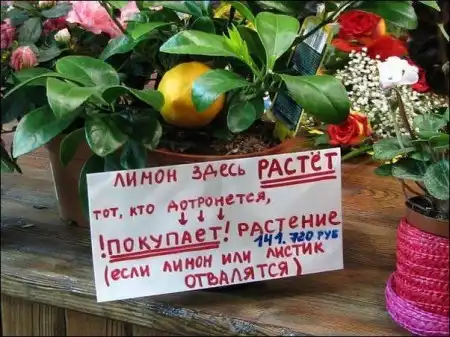 ЛИМОН ЗДЕСЬ РАСТЁТ
ТОТ, КТО ДОТРОНЕТСЯ,
!ПОКУПАЕТ! РАСТЕНИЕ
141.720 РУБ
(ЕСЛИ ЛИМОН ИЛИ ЛИСТИК
ОТВАЛЯТСЯ)